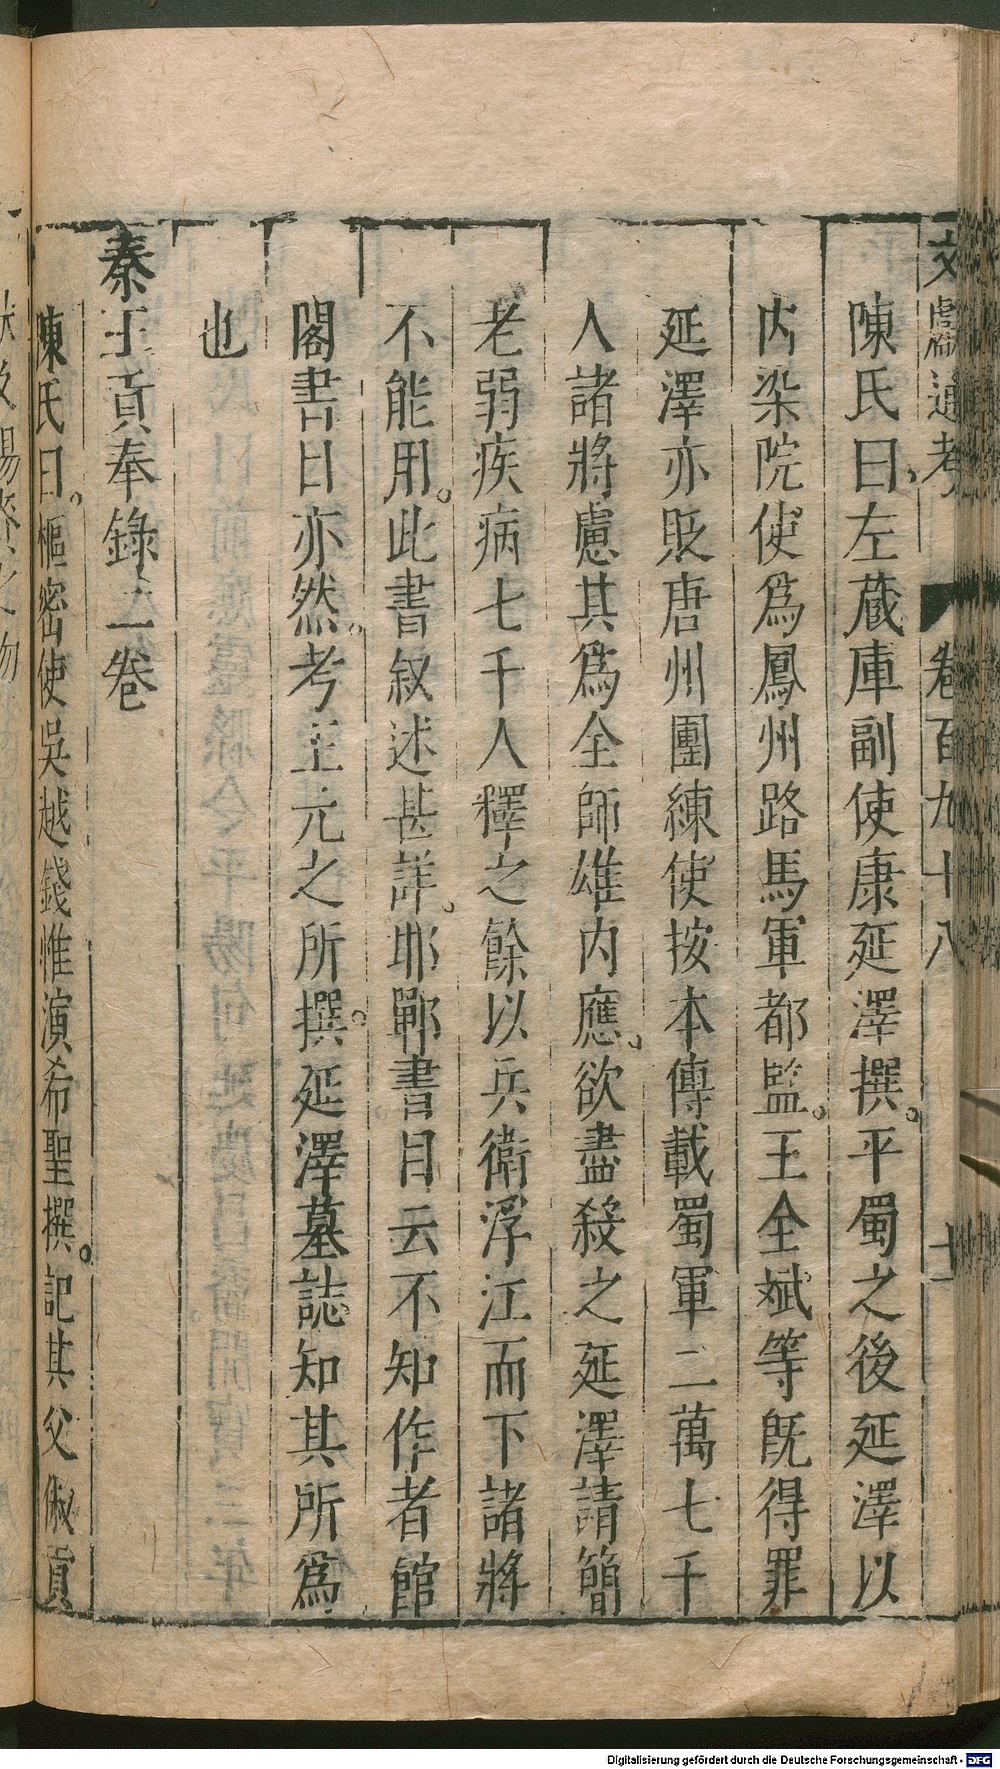 文獻通考 卷百九十八 十一
陳氏曰左藏庫副使康延澤撰平蜀之後延澤以
内染院使爲鳳州路馬軍都監王全斌等旣得罪
延澤亦貶唐州團練使按本傳載蜀軍二萬七千
人諸將慮其爲全師雄内應欲盡殺之延澤請簡
老弱疾病七千人釋之餘以兵衛浮江而下諸將
不能用此書叙述甚詳邯鄲書目云不知作者館
閣書目亦然考王元之所撰延澤墓誌知其所爲
也
秦王貢奉錄二卷
陳氏曰樞密使吳越錢惟演希聖撰記其父俶貢
Digitalisierung gefördert durch die Deutsche Forschungsgemeinschaft - DFG